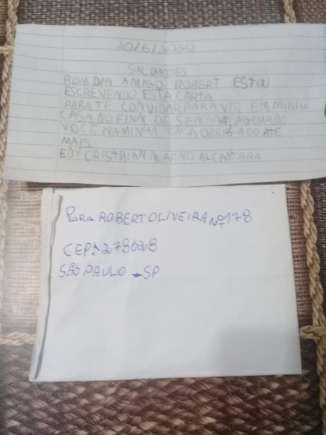 20/6/2020
BOM DIA AMIGO ROBERT ESTOU
ESCREVENDO ESTA CARTA
PARA TE CONVIDAR PARA VIR EM MINHA
CASA NO FINAL DE SEMANA AGUARDO
VOCE NA MINHA CASA OBRIGADO ATÉ
MAIS
EU: CRISTIAN ALCANTARA
Para ROBERT OLIVEIRA Nº 178
CEP:
SÃO PAULO - SP